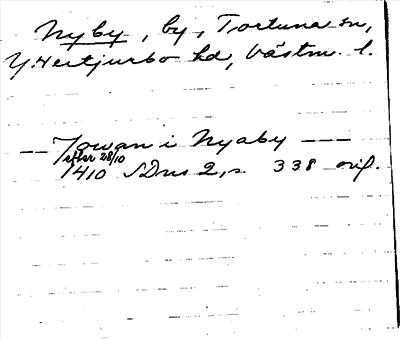 Nyby, by, Tortuna sn,
Y. Tertjurbo hd, Västm. l.
-- Jowan i Nyaby ---
efter 28/10
1410 SDns 2, s. 338 orig.